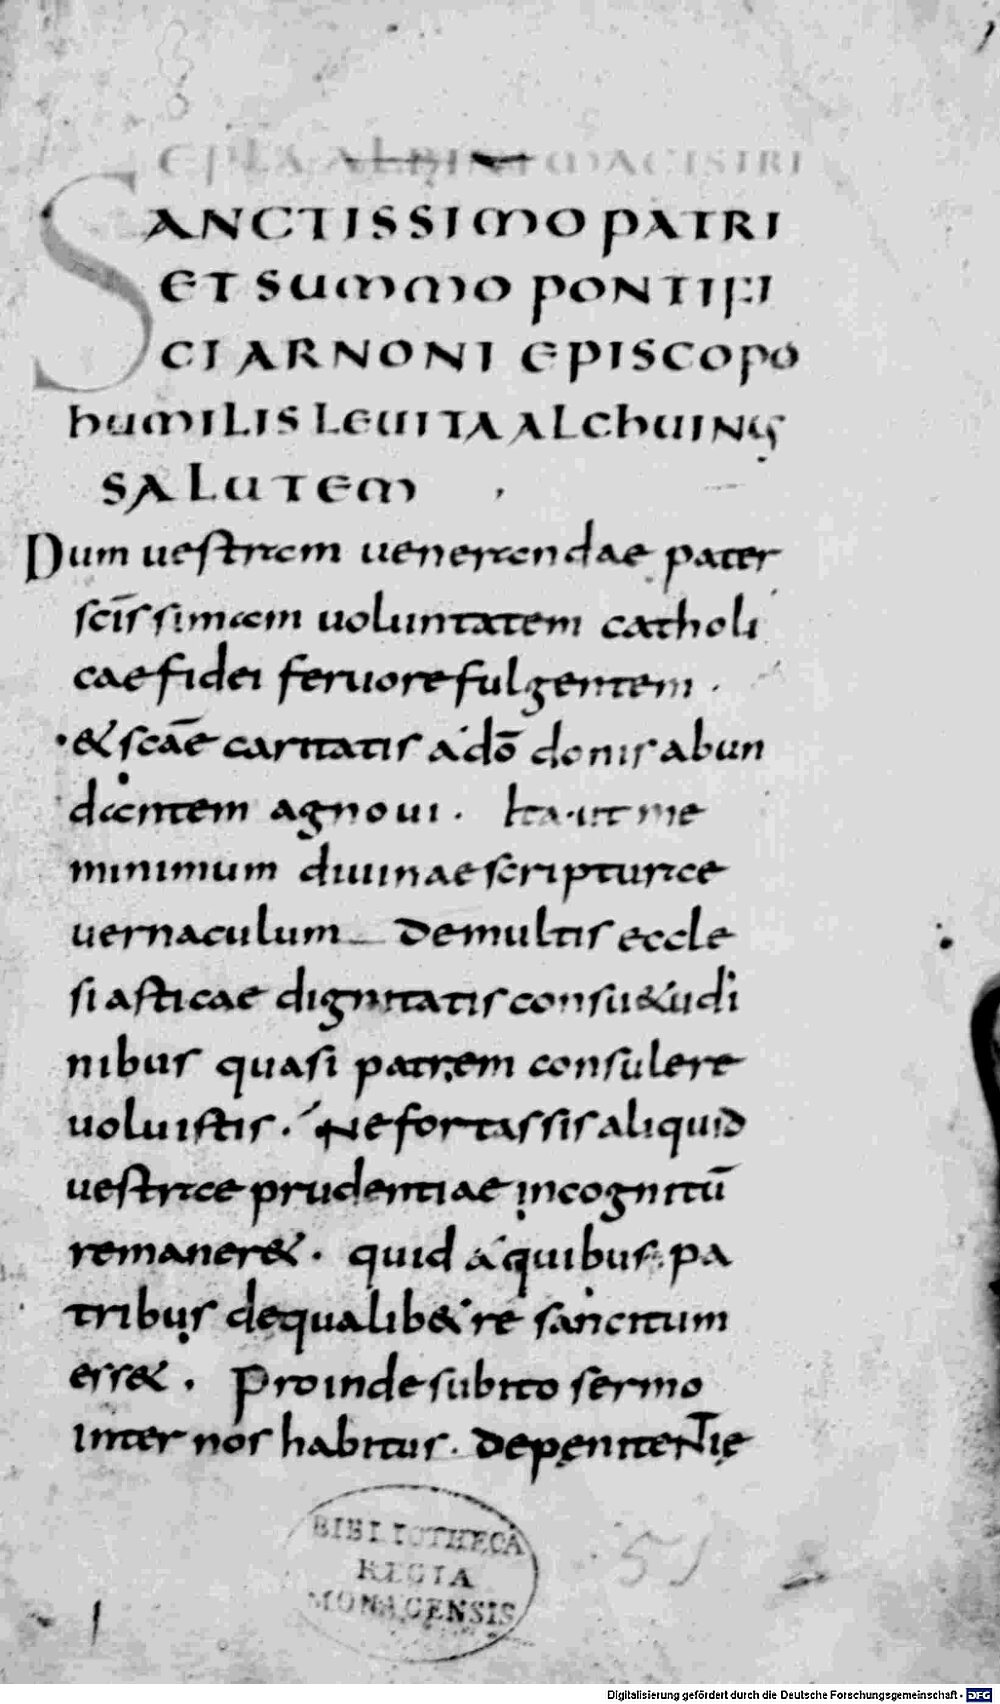 EPLA ALBINI MAGISTRI
SANCTISSIMO PATRI
ET SUMMO PONTIFI
CI ARNONI EPISCOPO
HUMILIS LEUITA ALCHUINUS
SALUTEM
Dum uestram uenerandae pater
scīssimam uoluntatem catholi
cae fidei feruore fulgentem .
& scāe caritatis a dō donis abun
dantem agnoui . Ita ut me
minimum diuinae scripturae
uernaculum de multis eccle
siasticae dignitatis consu&udi
nibus quasi patrem consulere
uoluistis . Ne fortassis aliquid
uestrae prudentiae incognitū
remaner& . quid a quibus pa
tribus de qualib& re sancitum
ess& . Proinde subito sermo
inter nos habitus . de pęnitentię
BIBLIOTHECA
REGIA
MONACENSIS
51
Digitalisierung gefördert durch die Deutsche Forschungsgemeinschaft - DFG